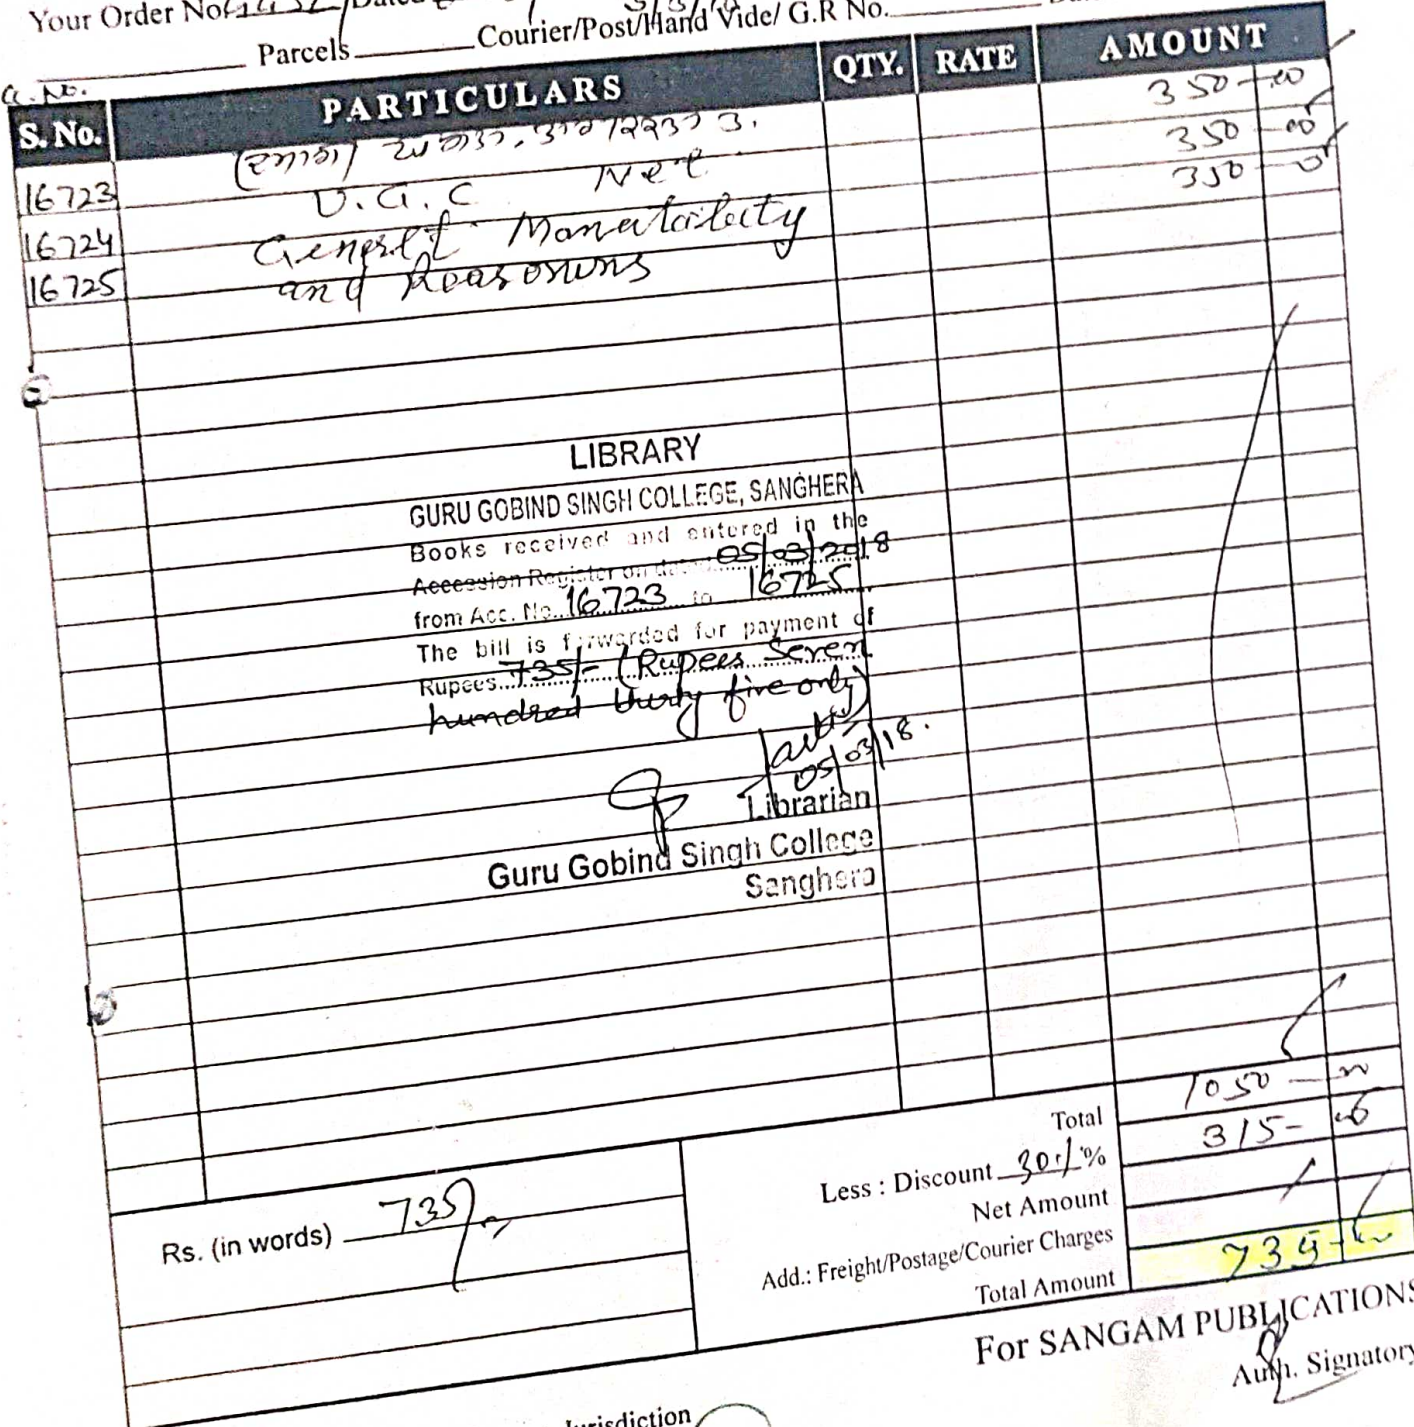 Your Order No.
Parcels Courier/Post/Hand Vide/ G.R No.
S. No. PARTICULARS QTY. RATE AMOUNT
350-00
16723 U.G.C Net 350-00
16724 General Mentability 350-00
16725 and Reasonins
LIBRARY
GURU GOBIND SINGH COLLEGE, SANGHERA
Books received and entered in the
Accession Register on dated 05/03/2018
from Acc. No. 16723 to 16725
The bill is forwarded for payment of
Rupees 735/- (Rupees Seven
hundred thirty five only)
05/03/18.
Librarian
Guru Gobind Singh College
Sanghera
Total 1050-00
Less : Discount 30% 315-00
Net Amount
Add.: Freight/Postage/Courier Charges
Total Amount 735-00
Rs. (in words) 735/-
For SANGAM PUBLICATIONS
Auth. Signatory
Jurisdiction